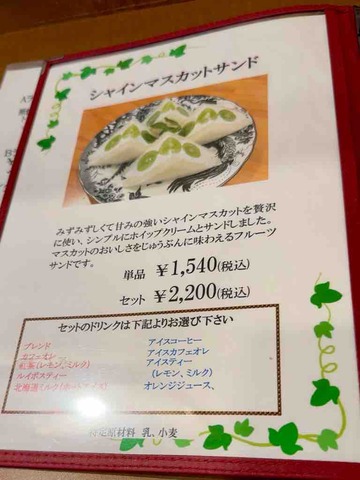 シャインマスカットサンド
みずみずしくて甘みの強いシャインマスカットを贅沢
に使い、シンプルにホイップクリームとサンドしました。
マスカットのおいしさをじゅうぶんに味わえるフルーツ
サンドです。
単品 ￥1,540(税込)
セット ￥2,200(税込)
セットのドリンクは下記よりお選び下さい
ブレンド
カフェオレ
紅茶(レモン、ミルク)
ルイボスティー
北海道ミルク(ホット・アイス)
アイスコーヒー
アイスカフェオレ
アイスティー
(レモン、ミルク)
オレンジジュース、
特定原材料 乳、小麦